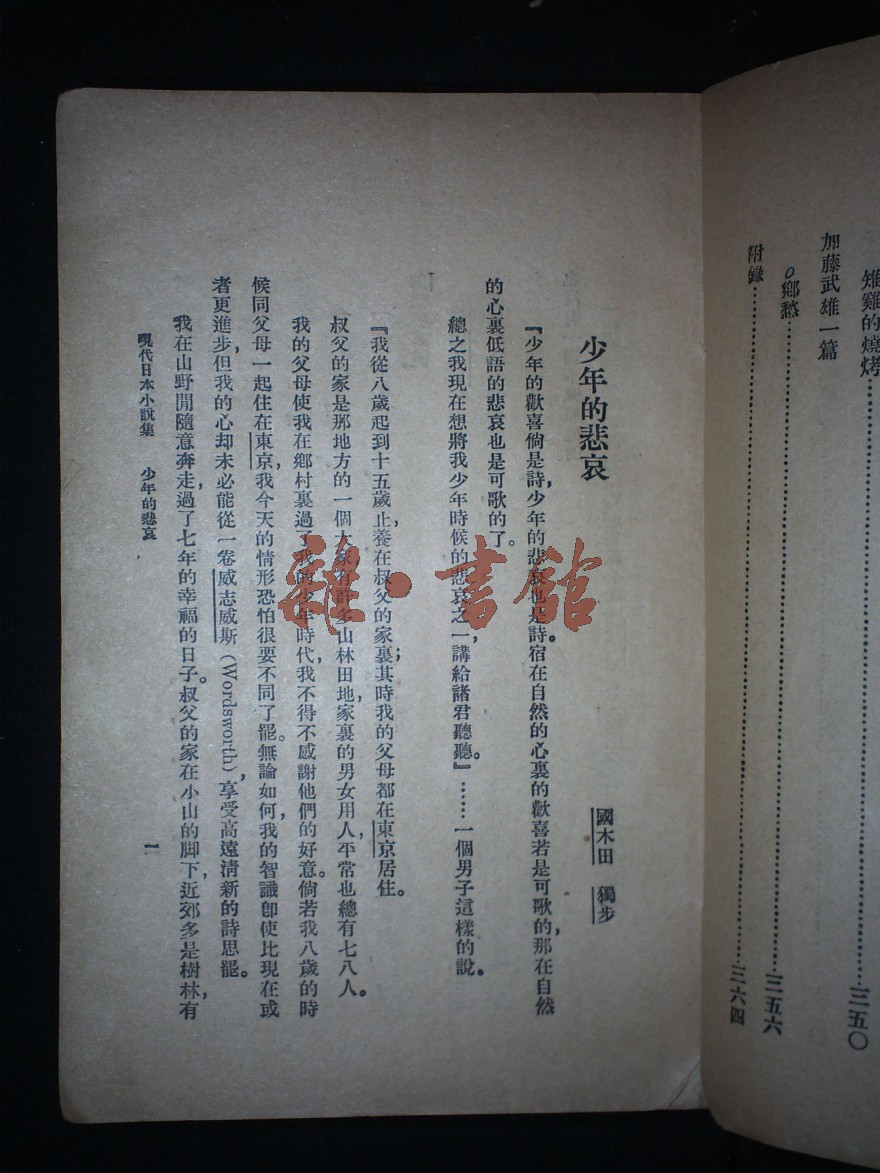 雉雞的燒烤…………三五〇
加藤武雄一篇
鄉愁…………三五六
附錄…………三六四
少年的悲哀
國木田 獨步
『少年的歡喜倘是詩,少年的悲哀也是詩。宿在自然的心裏的歡喜若是可歌的,那在自然
的心裏低語的悲哀也是可歌的了。
總之我現在想將我少年時候的悲哀之一,講給諸君聽聽。』……一個男子這樣的說。
『我從八歲起到十五歲止,養在叔父的家裏;其時我的父母都在東京居住。
叔父的家是那地方的一個大家,有許多山林田地,家裏的男女用人,平常也總有七八人。
我的父母使我在鄉村裏過了我的少年時代,我不得不感謝他們的好意。倘若我八歲的時
候同父母一起住在東京,我今天的情形恐怕很要不同了罷。無論如何,我的智識卽使比現在或
者更進步,但我的心却未必能從一卷威志威斯(Wordsworth),享受高遠清新的詩思罷。
我在山野間隨意奔走,過了七年的幸福的日子。叔父的家在小山的脚下,近郊多是樹林,有
現代日本小說集 少年的悲哀
一
雜·書館